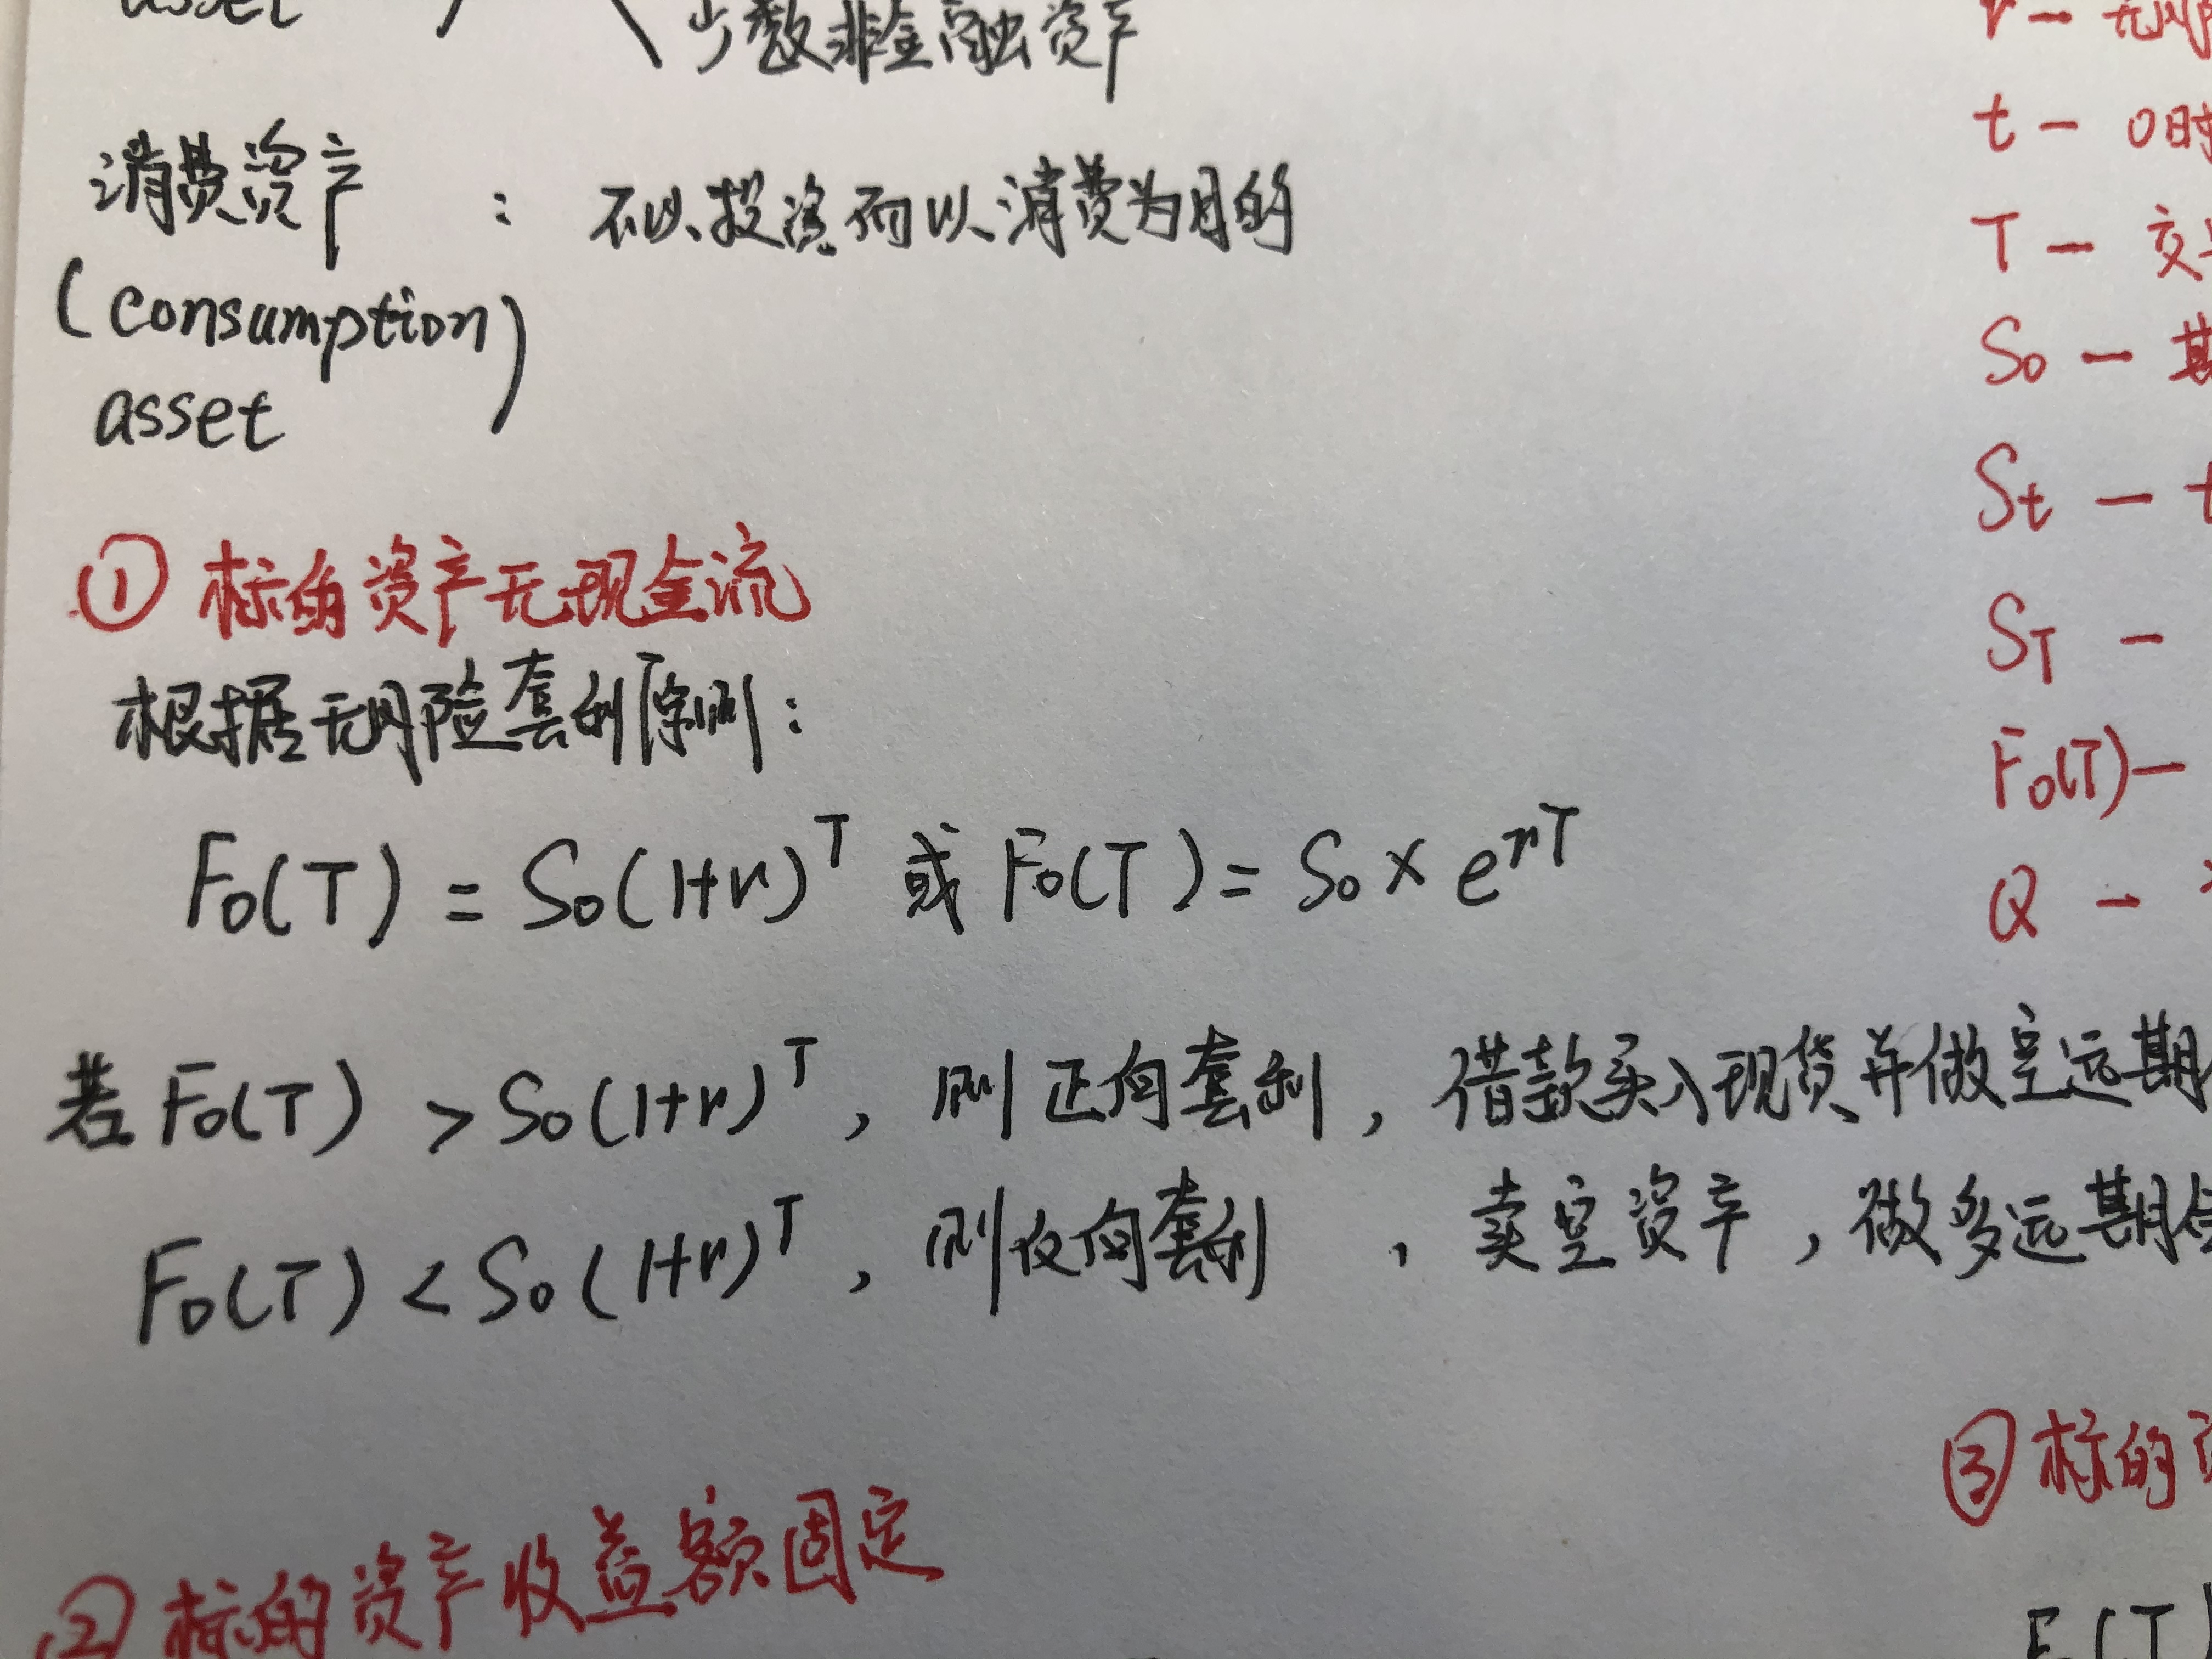 asset
少数非金融资产
消费资产 : 不以投资而以消费为目的
(consumption)
asset
① 标的资产无现金流
根据无风险套利原则:
F₀(T) = S₀(1+r)ᵀ 或 F₀(T) = S₀ × eʳᵀ
若 F₀(T) > S₀(1+r)ᵀ, 则正向套利, 借款买入现货并做空远期
F₀(T) < S₀(1+r)ᵀ, 则反向套利, 卖空资产, 做多远期
② 标的资产收益额固定
r — 无风
t — 0时
T — 交
S₀ —
St — t
ST —
F₀(T) —
Q —
③ 标的
F₀(T)